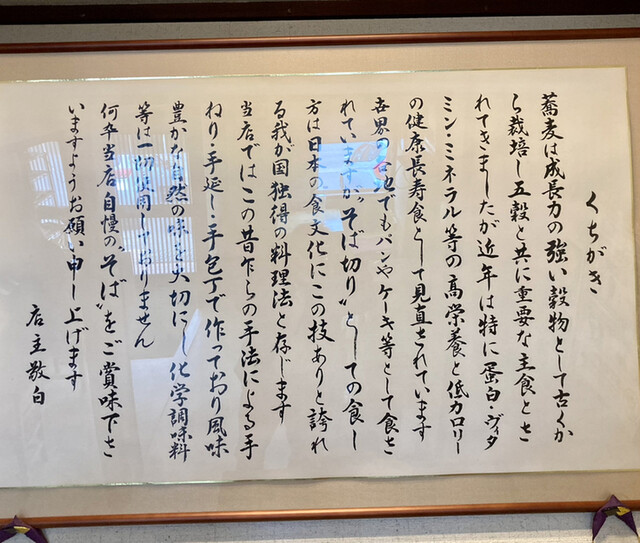 くちがき
蕎麦は成長力の強い穀物として古くか
ら栽培し五穀と共に重要な主食とさ
れてきましたが近年は特に蛋白・ヴィタ
ミン・ミネラル等の高栄養と低カロリー
の健康長寿食として見直されています
世界の各地でもパンやケーキ等として食さ
れていますが〝そば切り〟としての食し
方は日本の食文化にこの技ありと誇れ
る我が国独得の料理法と存じます
当店ではこの昔乍らの手法による手
ねり・手延し・手包丁で作っており風味
豊かな自然の味を大切にし化学調味料
等は一切使用しておりません
何卒当店自慢の〝そば〟をご賞味下さ
いますようお願い申し上げます
店主敬白